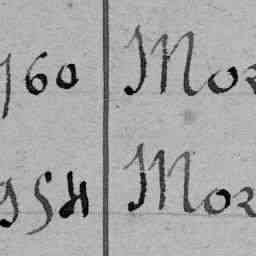 760 Mor
954 Mor